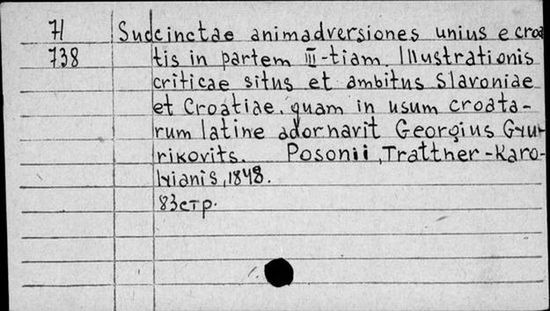 И Succinctae animadversiones unius e croa
738 tis in partem III-tiam Illustrationis
criticae situs et ambitus Slavoniae
et Croatiae quam in usum croata-
rum latine adornavit Georgius Gyu-
rikovits. Posonii, Trattner-Karo-
lyianis, 1848.
83стр.